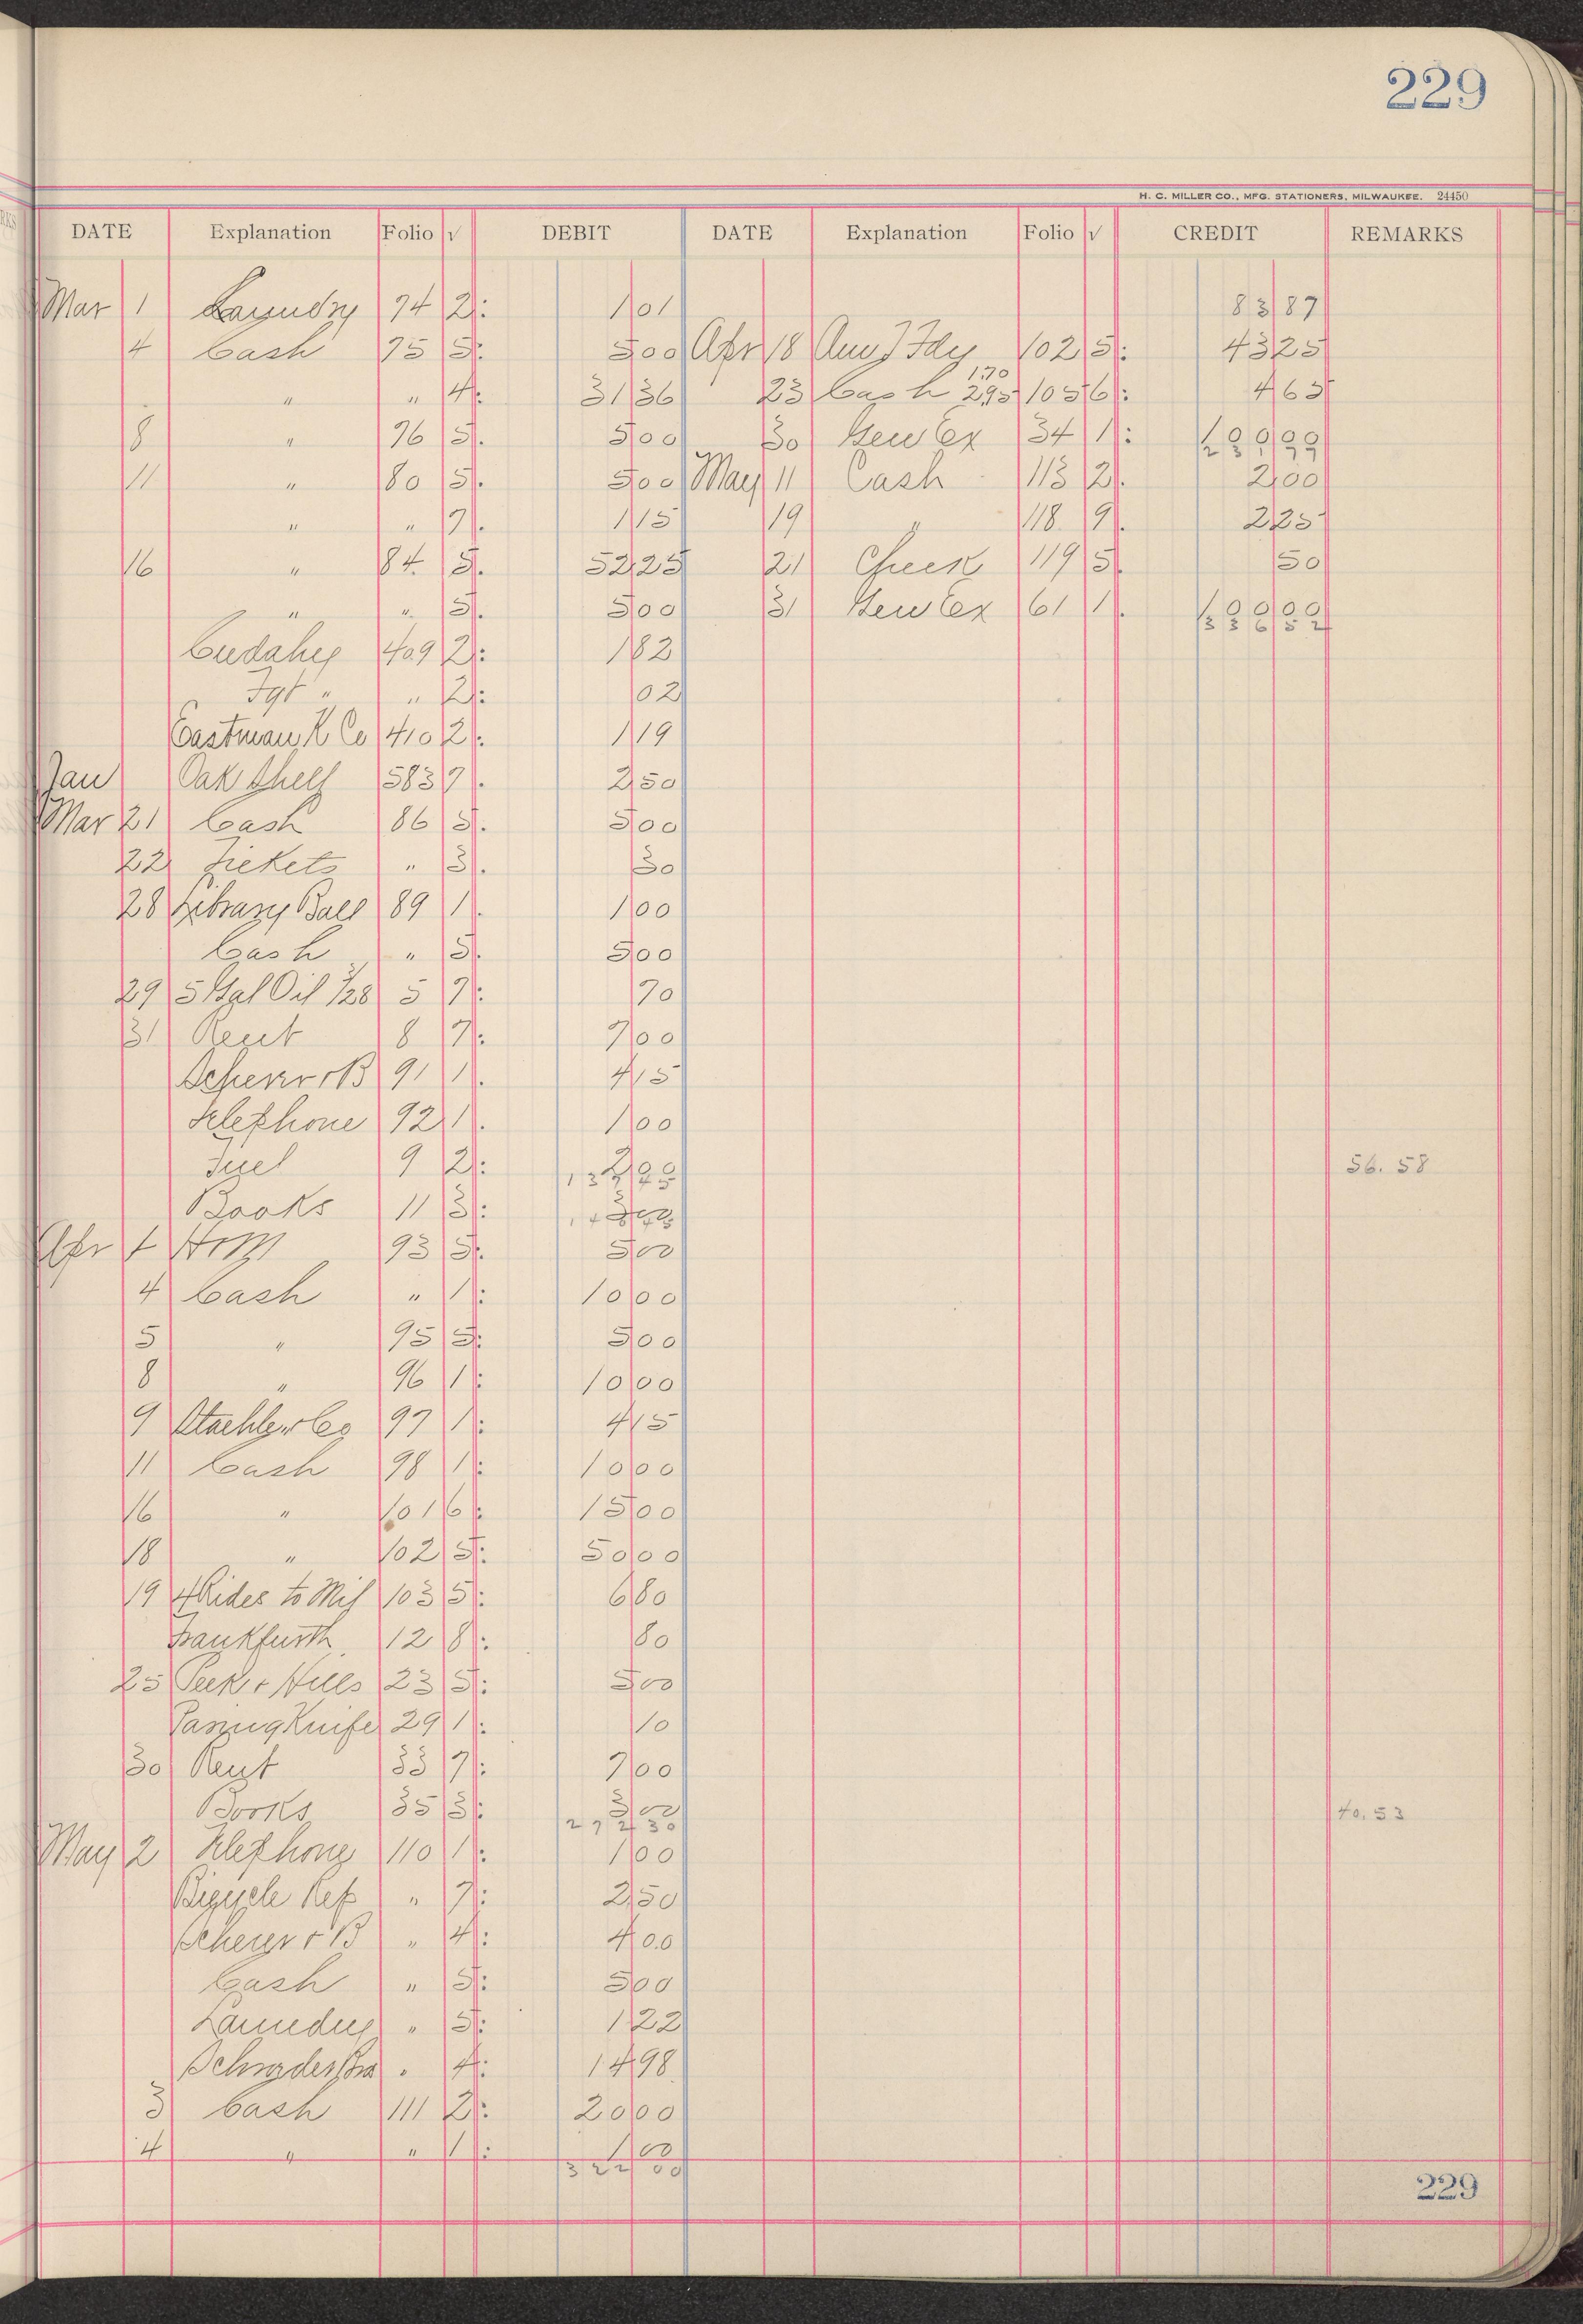 229
H. C. MILLER CO., MFG. STATIONERS, MILWAUKEE. 24450
DATE Explanation Folio √ DEBIT DATE Explanation Folio √ CREDIT REMARKS
Mar 1 Laundry 74 2 1 01 83 87
4 Cash 75 5 5 00 Apr 18 102 5 43 25
" " 4 31 36 23 Cash 1.70 2.95 105 6 4 65
8 " 76 5 5 00 30 Gen Ex 34 1
11 " 80 5 5 00 May 11 Cash 113 2 2 00
" " 7 1 15 19 " 118 9 2 25
16 " 84 5 52 25 21 Check 119 5 50
" " 5 5 00 31 Gen Ex 61 1
Cudahy 409 2 1 82
Fgt " " 2 02
Eastman K Co 410 2 1 19
Jan Oak Shelf 583 7 2 50
Mar 21 Cash 86 5 5 00
22 Tickets " 3 30
28 Library Ball 89 1 1 00
Cash " 5 5 00
29 5 Gal Oil 128 5 7 70
31 Rent 8 7 7 00
91 1 4 15
Telephone 92 1 1 00
Fuel 9 2 56.58
Books 11 3
Apr 1 93 5 5 00
4 Cash " 1 10 00
5 " 95 5 5 00
8 " 96 1 10 00
9 97 1 4 15
11 Cash 98 1 10 00
16 " 101 6 15 00
18 " 102 5 50 00
19 4 Rides to Mil 103 5 6 80
Frankfurth 12 8 80
25 Peek + Hills 23 5 5 00
Paring Knife 29 1 10
30 Rent 33 7 7 00
Books 35 3 3 00 40.53
May 2 Telephone 110 1 1 00
Bicycle Rep " 7 2 50
Scherer + B " 4 4 00
Cash " 5 5 00
Laundry " 5 1 22
Schrader Bro " 4 14 98
3 Cash 111 2 20 00
4 " " 1 1 00
229